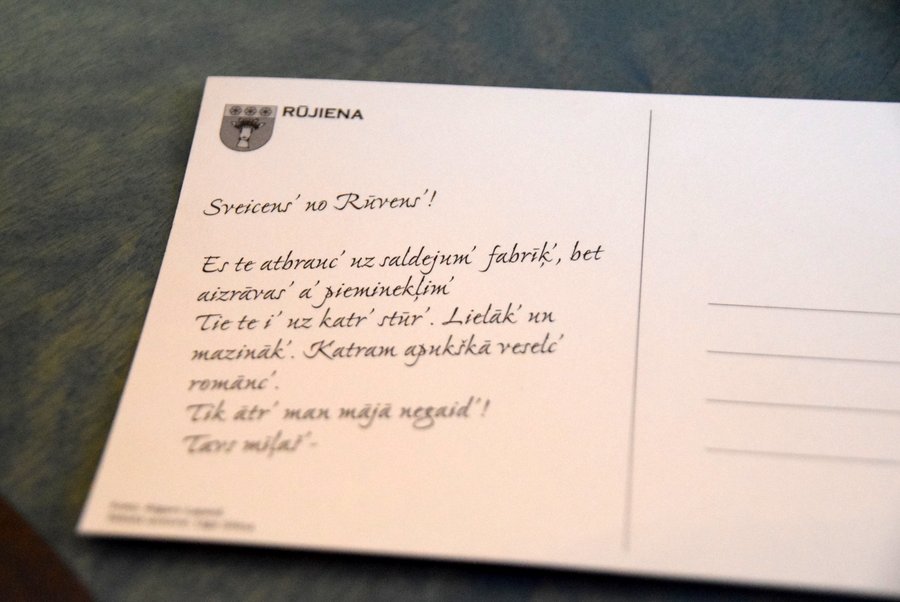 RŪJIENA
Sveicens' no Rūvens'!
Es te atbrauc' uz saldejum' fabrīķ', bet
aizrāvas' a' pieminekļim'
Tie te i' uz katr' stūr'. Lielāk' un
mazināk'. Katram apukškā veselc'
romānc'.
Tik ātr' man mājā negaid'!
Tavs mīļaš'-